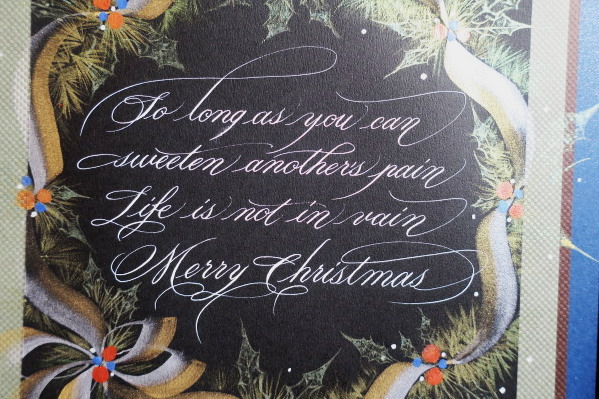 So long as you can
sweeten another's pain
Life is not in vain
Merry Christmas